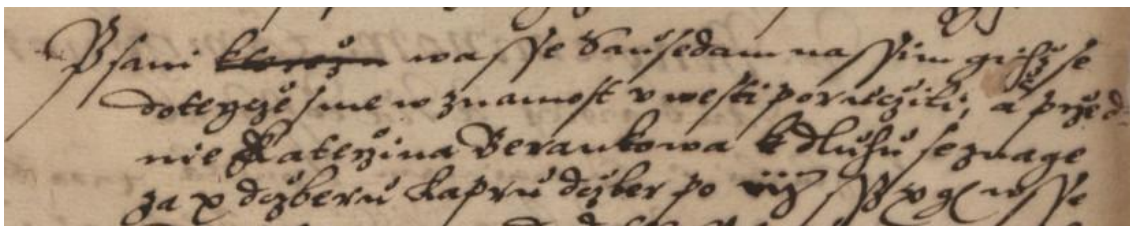 Psani kterez wasse Sausedam nassim gichž se
dotegcze sme w znamost v westi poruczili, a przed-
nie Katerzina Berankowa k dluhu seznage
za x dczberu kapru dczber po iiij ss xv g( wsse